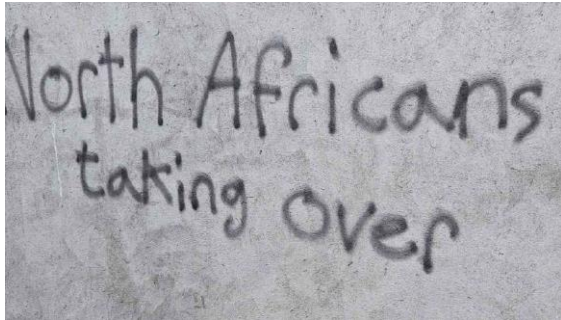 North Africans
taking over